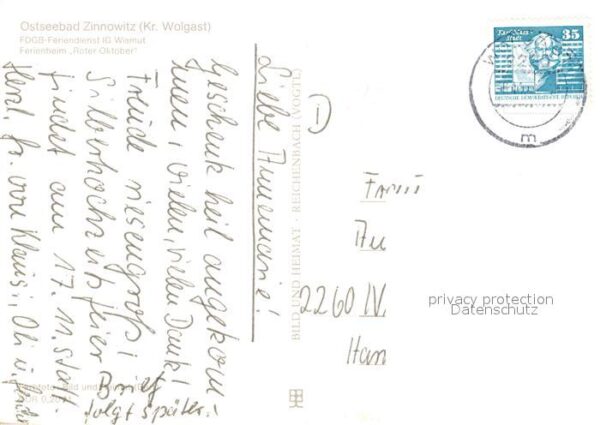 Ostseebad Zinnowitz (Kr. Wolgast)
FDGB-Feriendienst IG Wismut
Ferienheim „Roter Oktober"
Liebe Annemarie!
Geschenk heil angekom
men, vielen, vielen Dank!
Freude riesengroß!
Silberhochzeitsfeier
findet am 17. 11. statt.
Herzl. Gr. von Klaus, Oli u.
Brief
folgt später!
BILD UND HEIMAT · REICHENBACH (VOGTL)
1
35
DEUTSCHE DEMOKRATISCHE REPUBLIK
m
Fam
An
2260 IV.
Han
privacy protection
Datenschutz